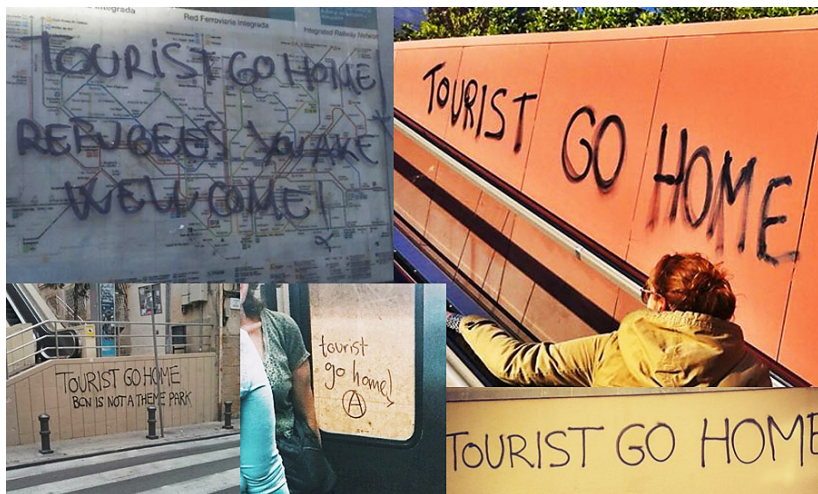 Red Ferroviaria Integrada
Integrated Railway Network
TOURIST GO HOME!
REFUGEES YOU ARE
WELLCOME!
TOURIST GO HOME
TOURIST GO HOME
BCN IS NOT A THEME PARK
tourist
go home!
A
TOURIST GO HOME